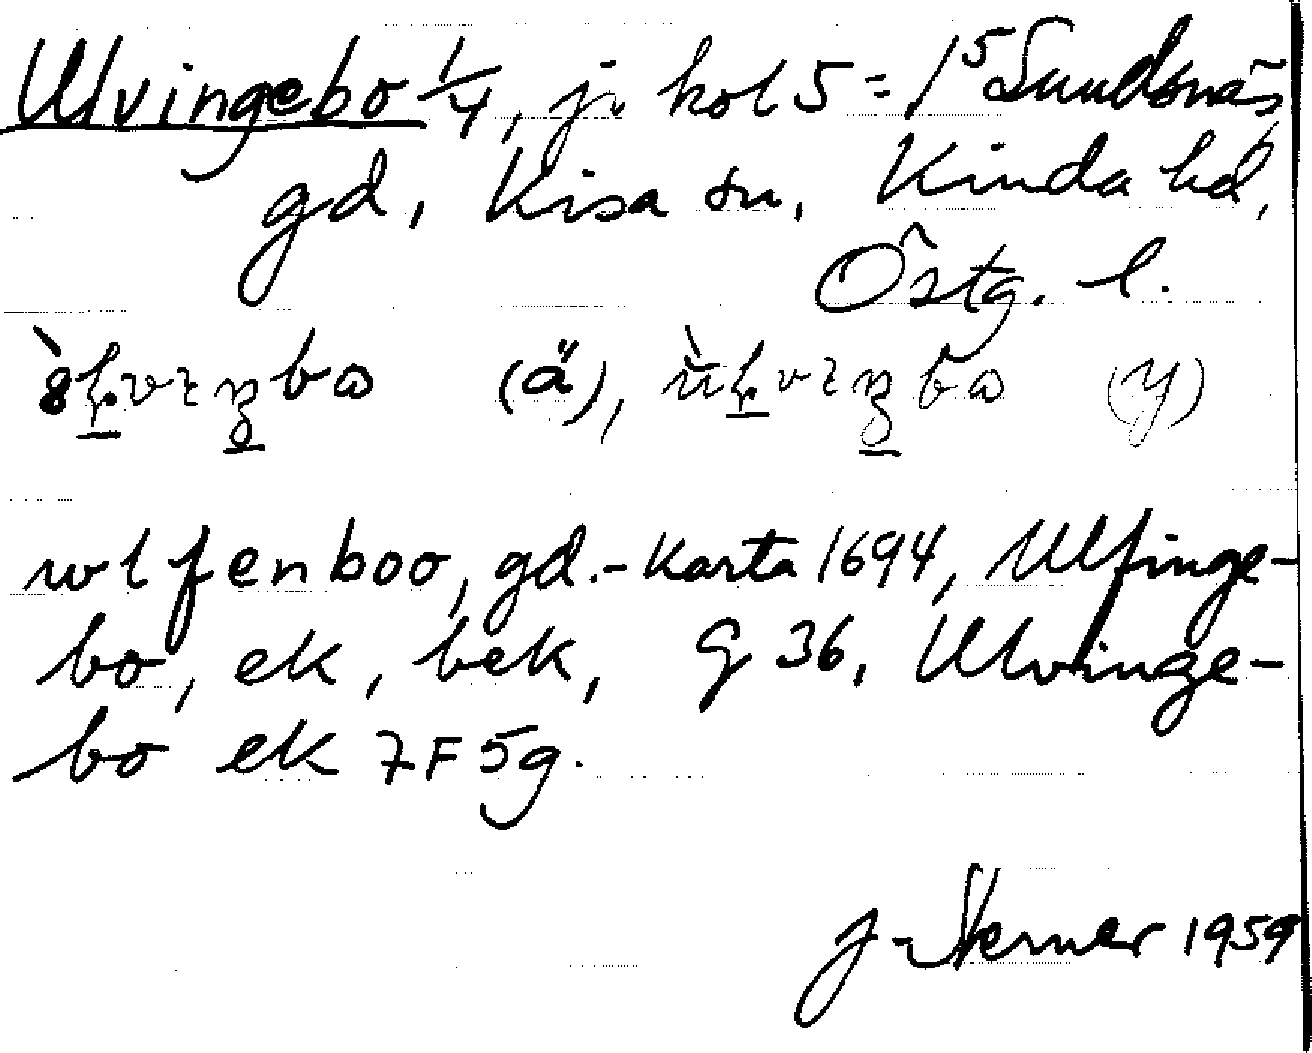 Ulvingebo 1/4, jr kol 5 = 1⁵ Sundsnäs
gd, Kisa sn, Kinda hd,
Östg. l.
(ä), (y)
wlfenboo, gd. - Karta 1694, Ulfinge-
bo, ek, bek, G 36, Ulvinge-
bo ek 7F 5g.
J. Sterner 1959